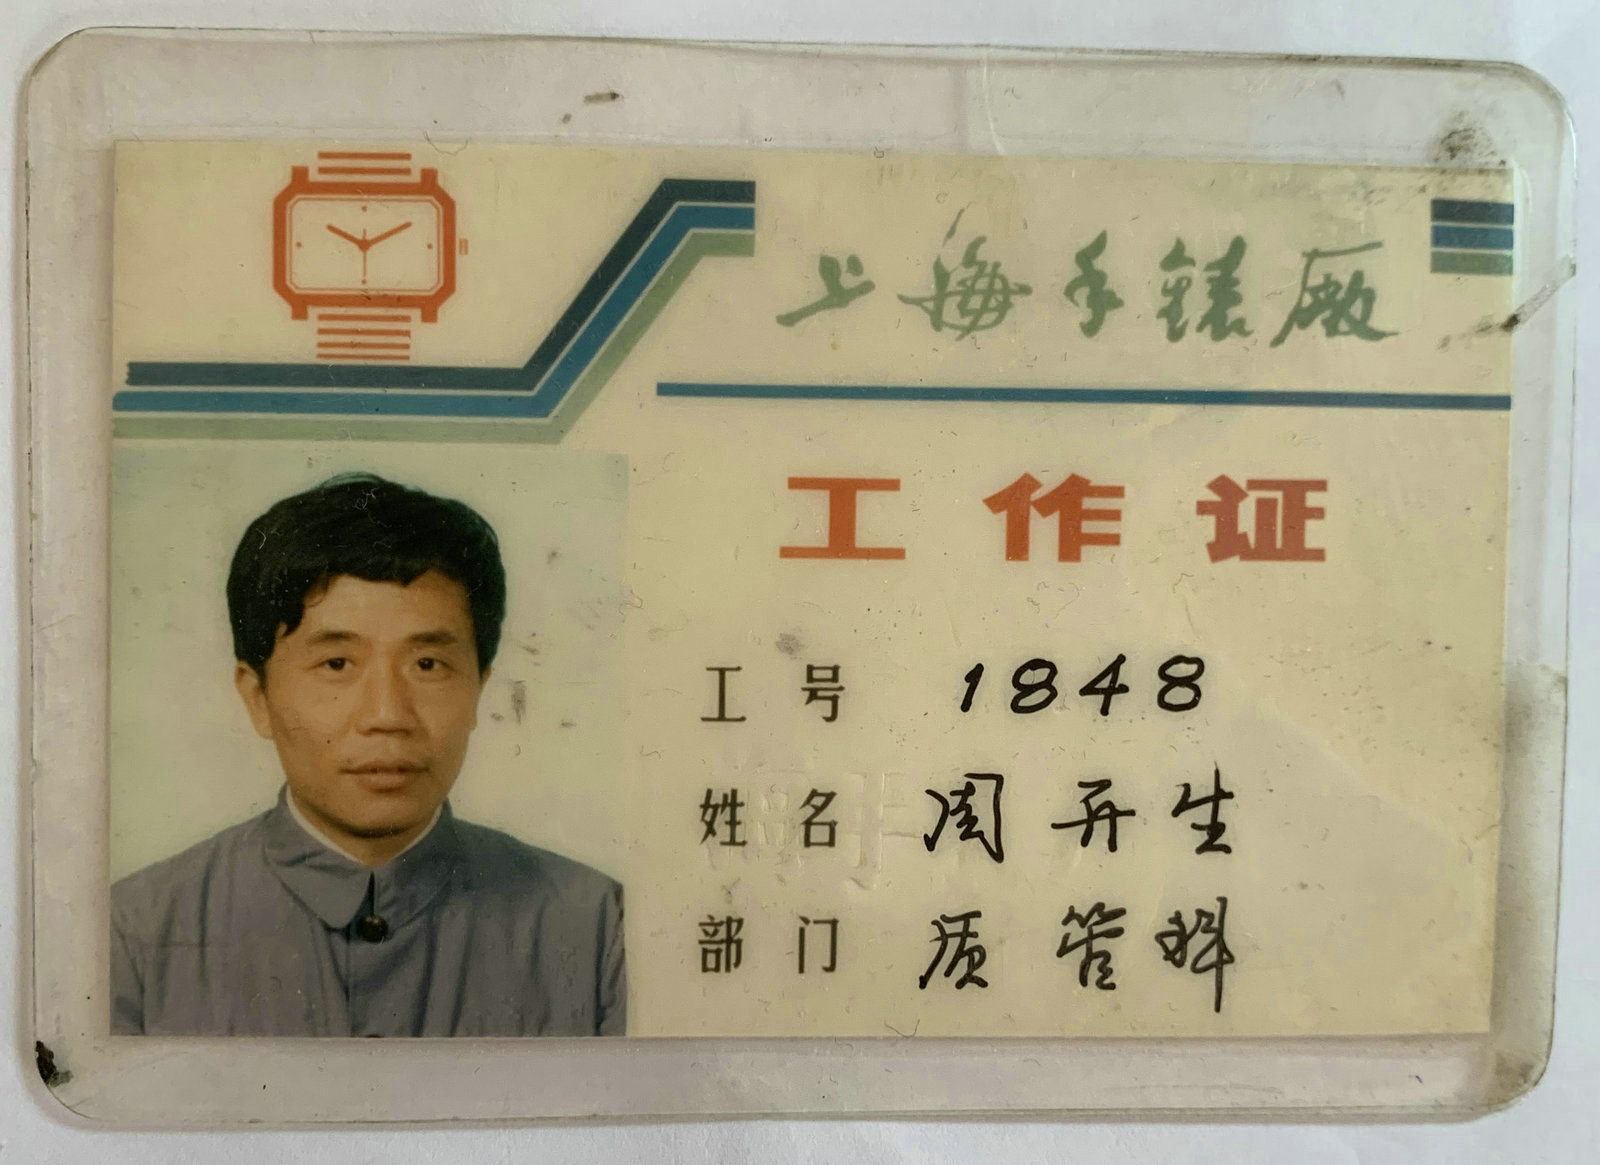 上海手錶廠
工作证
工号 1848
姓名 周开生
部门 质管科